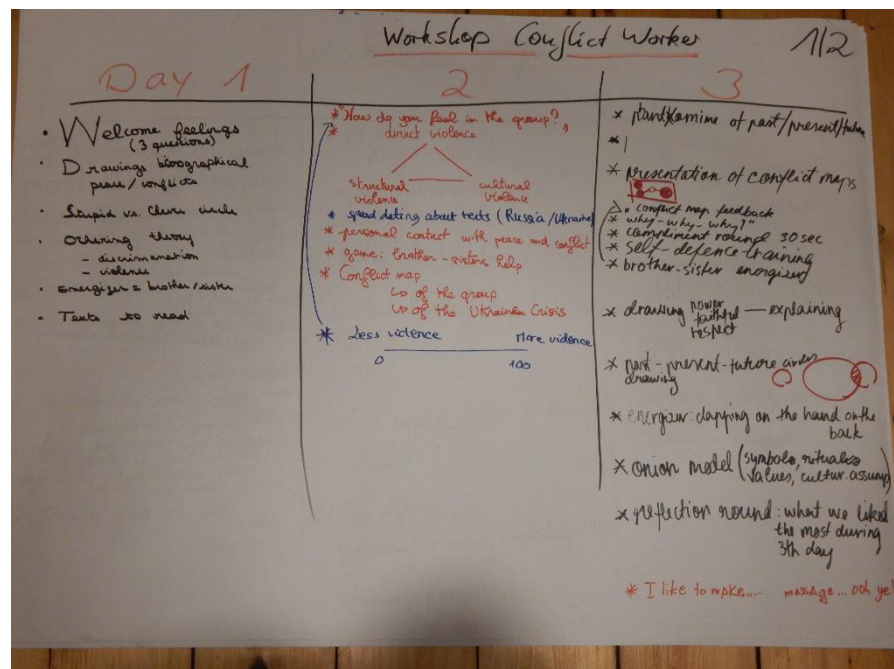 Workshop Conflict Worker
1/2
Day 1
• Welcome feelings
(3 questions)
• Drawings biographical
peace/conflicts
• Stupid vs. Clever circle
• Othering theory
– discrimination
– violence
• Energizer = brother/sister
• Texts to read
2
* "How do you feel in the group?"
* direct violence
structural
violence
cultural
violence
* speed dating about texts (Russia/Ukraine)
* personal contact with peace and conflict
* game: brother-sisters help
* Conflict map
↳ of the group
↳ of the Ukrainen Crisis
* Less violence
More violence
0
100
3
* of past/present/future
* presentation of conflict maps
conflict map feedback
* "why-why-why?"
* compliment round 30 sec
* self-defence training
* brother-sister energizer
* drawing power
faithful
respect
— explaining
* past-present-future circles
drawing
* energizer: clapping on the hand on the
back
* onion model (symbols, rituals
values, cultur. assump)
* reflection round: what we liked
the most during
3th day
* I like to make..... massage... ooh ye